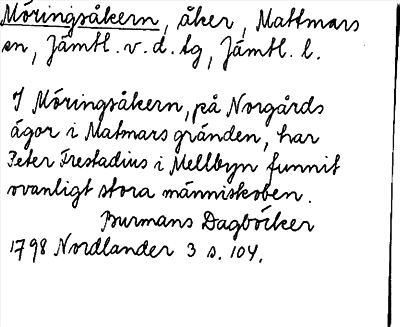 Möringsåkern, åker, Mattmars
sn, Jämtl. v. d. tg, Jämtl. l.
I Möringsåkern, på Norgårds
ägor i Matmarsgränden, har
Peter Frestadius i Mellbyn funnit
ovanligt stora människoben.
Burmans Dagböcker
1798 Nordlander 3 s. 104.